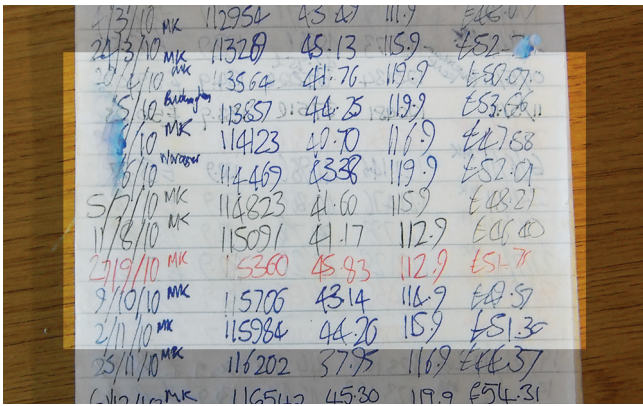 /3/10 MK 112954 45.49 111.9
24/3/10 MK 113289 45.13 115.9
/4/10 MK 113564 41.76 119.9 £50.07
/5/10 Buckingham 113857 44.25 119.9
/10 MK 114123 40.70 116.9 £47.58
/6/10 114469 43.38 119.9 £52.01
5/7/10 MK 114823 41.60 115.9 £48.21
11/8/10 MK 115091 41.17 112.9
27/9/10 MK 115360 45.83 112.9
9/10/10 MK 115706 43.14 114.9 £49.57
2/11/10 MK 115984 44.20 115.9
25/11/10 MK 116202 37.95 116.9 £44.37
6/12/10 MK 116542 45.30 119.9 £54.31